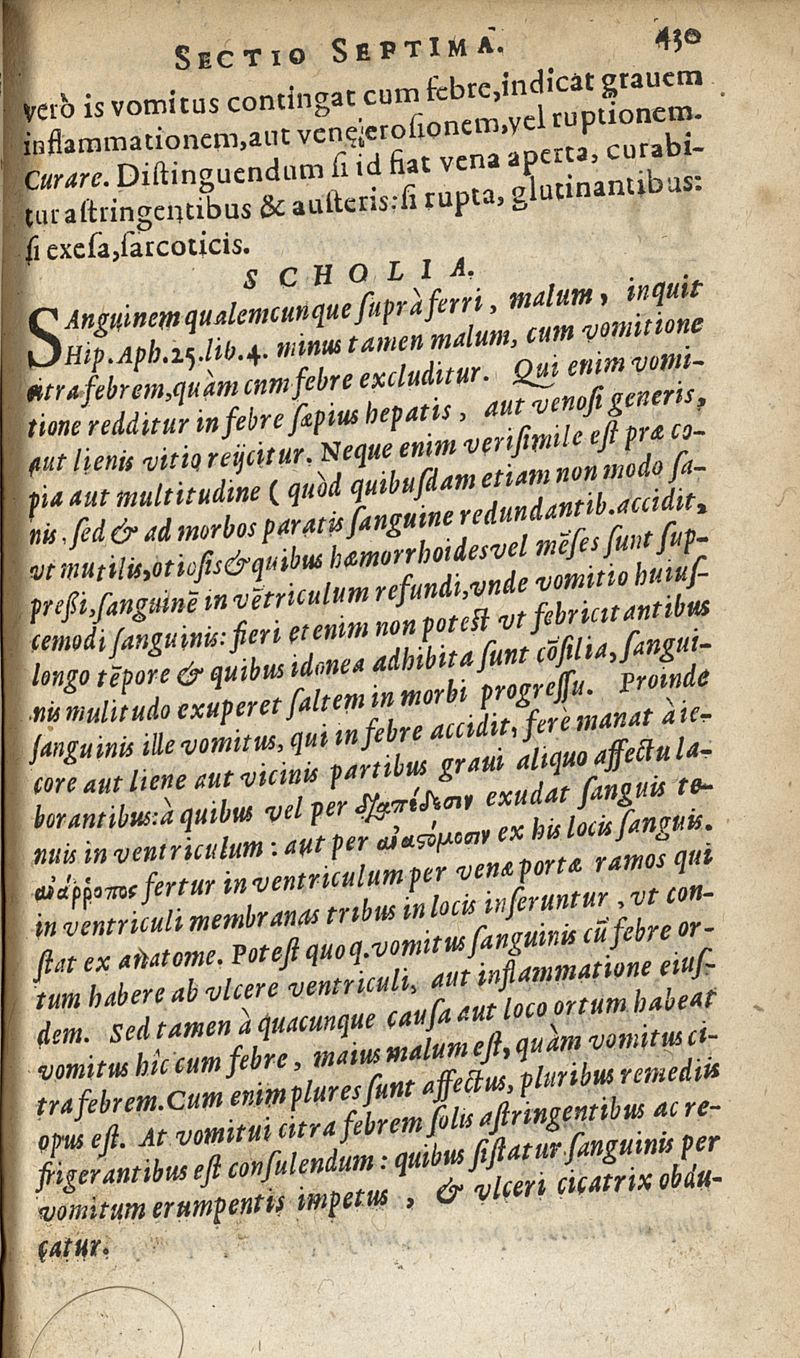 SECTIO SEPTIMA. 430
verò is vomitus contingat cum febre,indicat grauem
inflammationem,aut venę,erosionem,vel ruptionem.
Curare. Distinguendum si id fiat vena aperta, curabi-
tur astringentibus & austeris:si rupta, glutinantibus:
si exesa,sarcoticis.
SCHOLIA.
SAnguinem qualemcunque suprà ferri, malum, inquit
Hip. Aph.25.lib.4. minus tamen malum, cum vomitione
citra febrem,quàm cnm febre excluditur. Qui enim vomi-
tione redditur in febre sæpius hepatis, aut venosi generis,
aut lienis vitio reijcitur. Neque enim verisimile est præ co-
pia aut multitudine ( quòd quibusdam etiam non modo sa-
nis, sed & ad morbos paratis sanguine redundantib. accidit,
vt mutilis,otiosis & quibus hæmorrhoides vel mēses sunt sup-
pressi,sanguinē in vētriculum refundi,vnde vomitio huius-
cemodi sanguinis: fieri etenim non potest vt febricitantibus
longo tēpore & quibus idonea adhibita sunt cōsilia, sangui-
nis mulitudo exuperet saltem in morbi progressu. Proinde
sanguinis ille vomitus, qui in febre accidit, ferè manat à ie-
core aut liene aut vicinis partibus graui aliquo affectu la-
borantibus:à quibus vel per διαπίδησιν exudat sanguis te-
nuis in ventriculum : aut per ἀναστόμωσιν ex his locis sanguis.
ἀνάῤῥοπος fertur in ventriculum per venæ portæ ramos qui
in ventriculi membranas tribus in locis inseruntur, vt con-
stat ex anatome. Potest quoq. vomitus sanguinis cū febre or-
tum habere ab vlcere ventriculi, aut inflammatione eius-
dem. Sed tamen à quacunque causa aut loco ortum habeat
vomitus hîc cum febre, maius malum est, quàm vomitus ci-
tra febrem. Cum enim plures sunt affectus, pluribus remediis
opus est. At vomitui citra febrem solis astringentibus ac re-
frigerantibus est consulendum : quibus sistatur sanguinis per
vomitum erumpentis impetus, & vlceri cicatrix obdu-
catur.